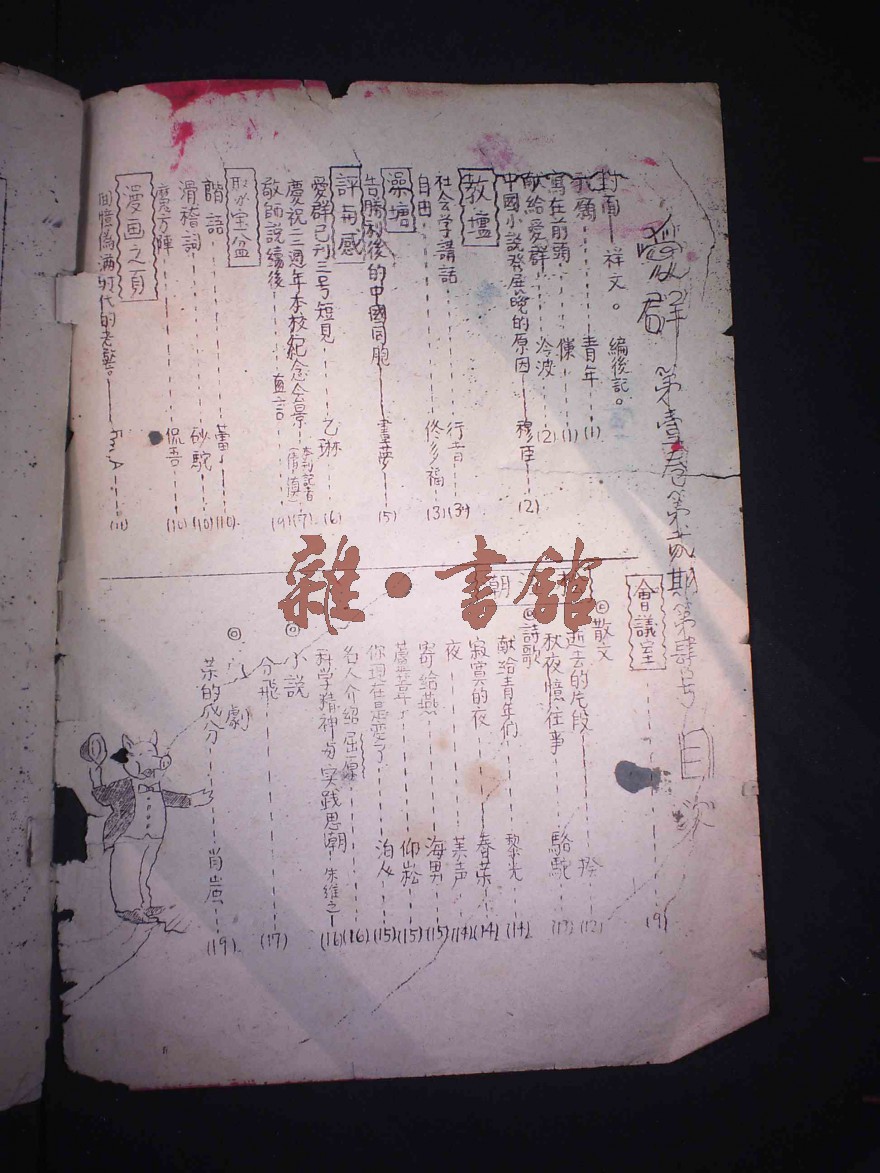 愛群 第壹卷第五期第肆号 目次
封面——祥文。 編後記。
我願------青年(1)
寫在前頭------(1)
献給愛群------冷波(2)
中國小說發展晚的原因——穆臣(2)
教壇
社会学講話------行者(3)
自由------佟多福(3)
澡壇
告勝利後的中國同胞------(5)
評与感
愛群已刊三号短見------乙琳(6)
慶祝三週年本校紀念会景------本刊記者(7)
敬師說編後------直言(9)
聚宝盆
諧語------(10)
滑稽詞------砂駝(10)
魔方陣------侃吾(10)
漫画之頁
回憶偽満时代的老\u2003。------(11)
會議室------(9)
◎散文
逝去的片段------揆(12)
秋夜憶往事------駱駝(13)
◎詩歌
献給青年們------黎光(14)
寂寞的夜------春茶(14)
夜------美声(14)
寄给燕------海男(15)
蘆葦葦了------仰崧(15)
你現在是变了------泊人(15)
名人介紹屈原------(16)
科学精神与实践思潮——朱維之(16)
◎小説
分飛------(17)
◎八劇
茶的成分------肖嵐(19)
雜·書館